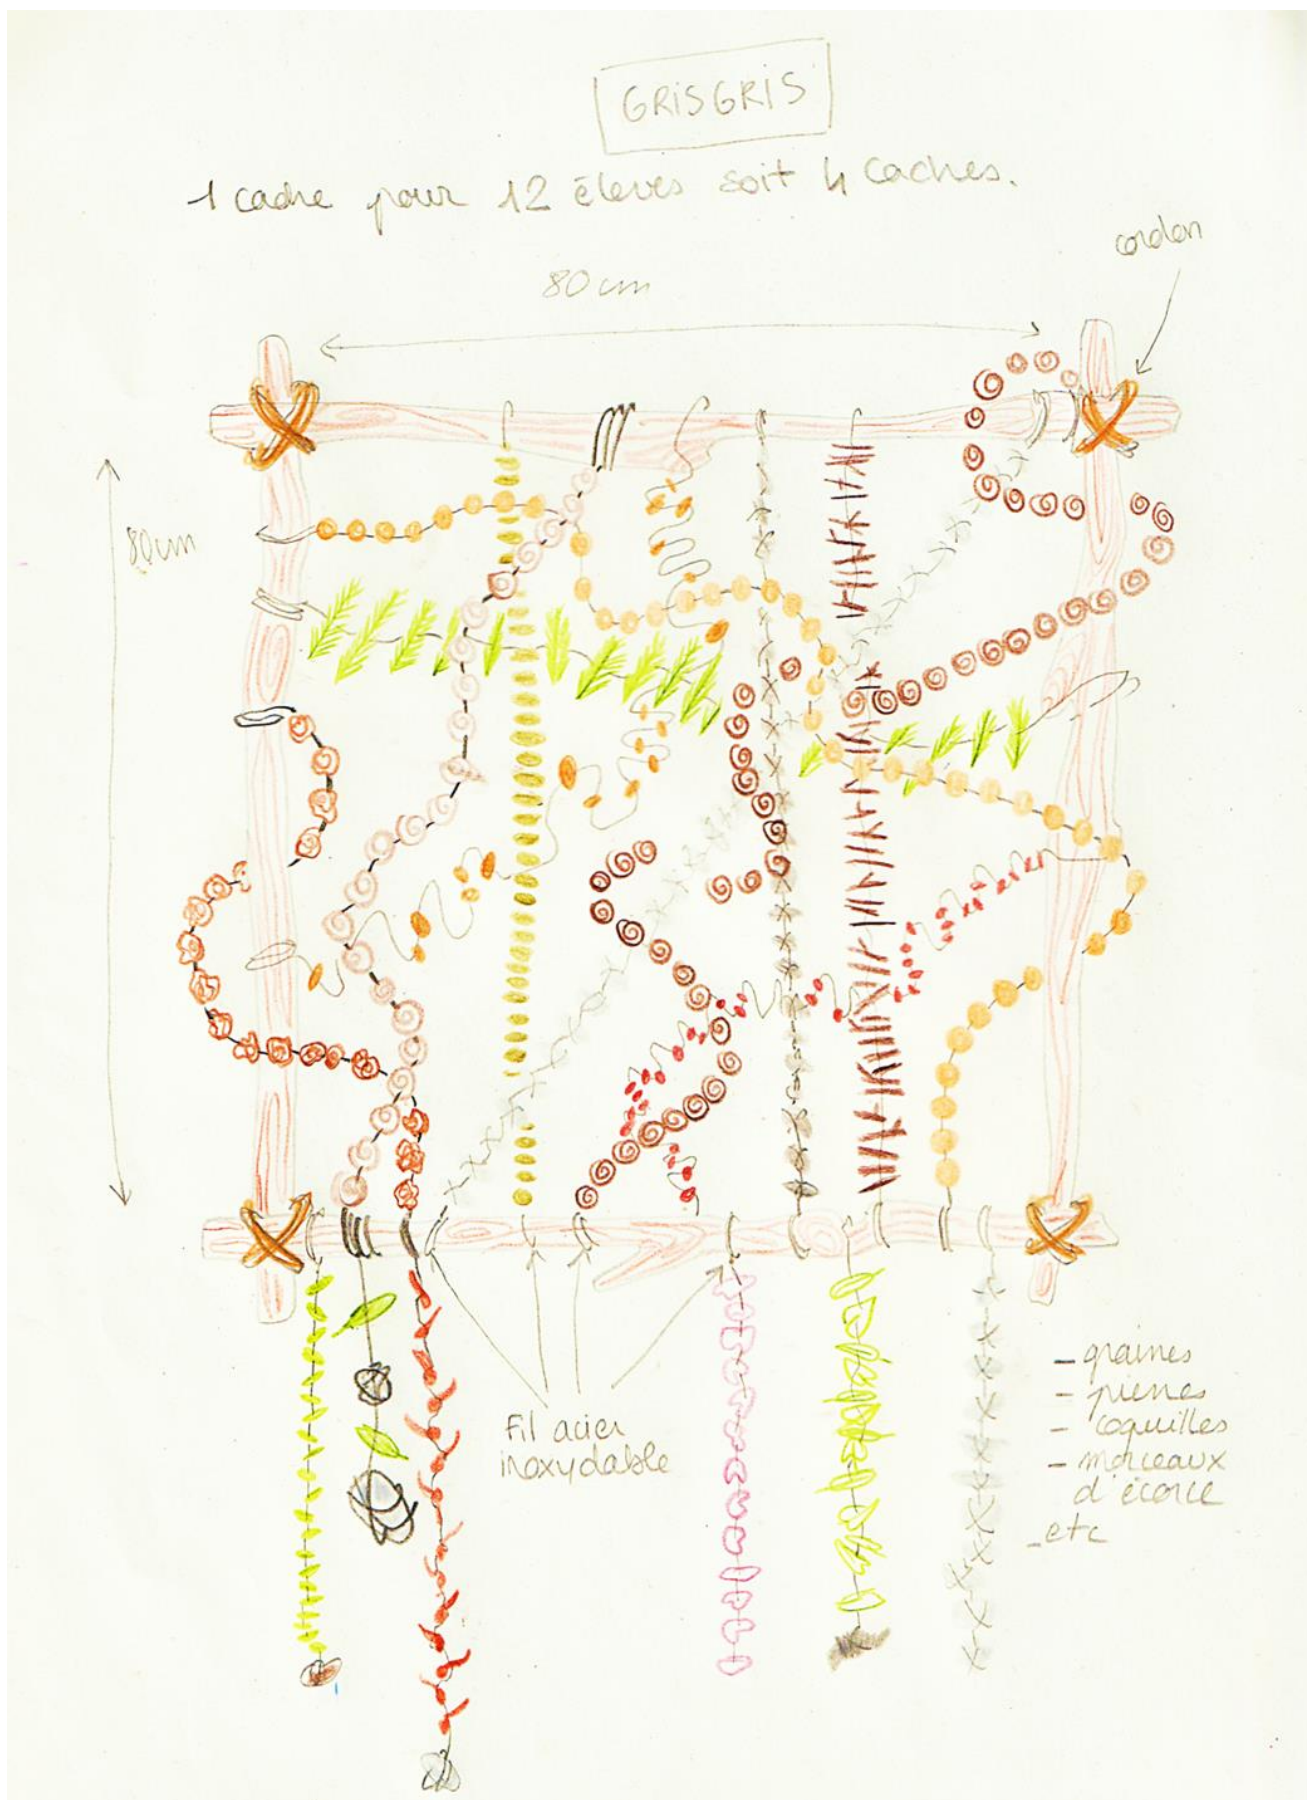 GRISGRIS
1 cadre pour 12 élèves soit 4 caches.
cordon
80cm
80cm
Fil acier
inoxydable
- graines
- pierres
- coquilles
- morceaux
d'écorce
- etc